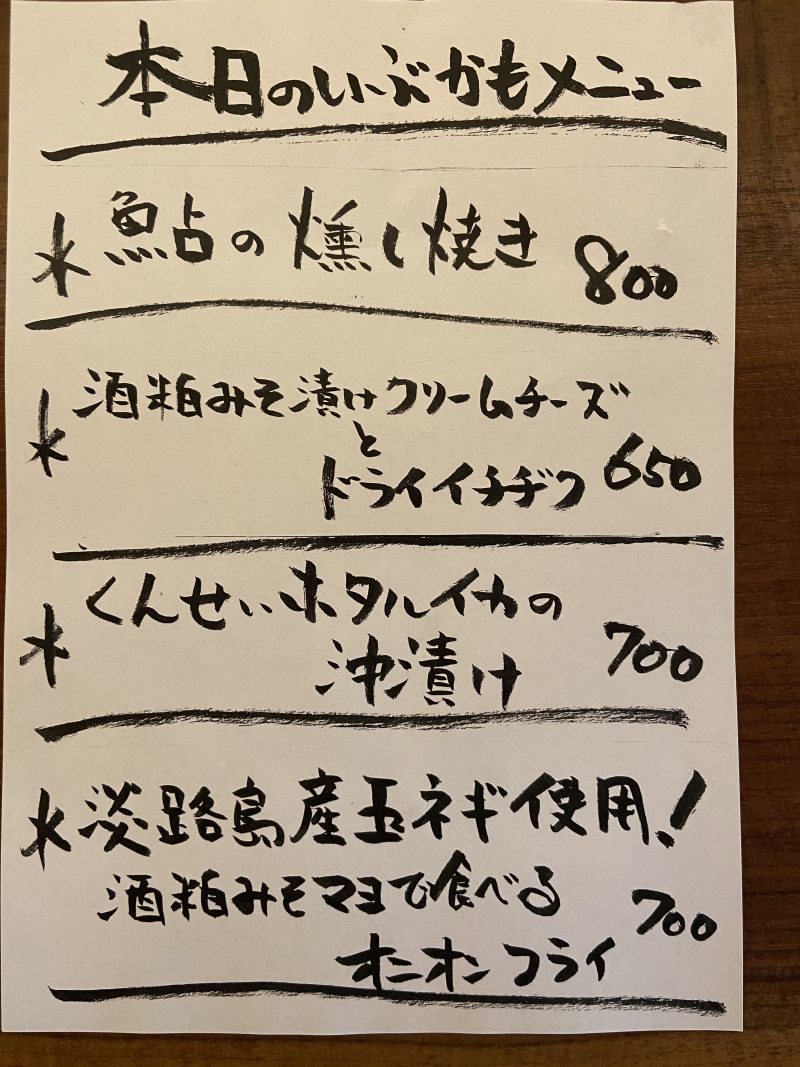 本日のいぶかもメニュー
* 鮎の燻し焼き 800
* 酒粕みそ漬けクリームチーズ
と
ドライイチヂク 650
* くんせいホタルイカの
沖漬け 700
* 淡路島産玉ネギ使用!
酒粕みそマヨで食べる 700
オニオンフライ